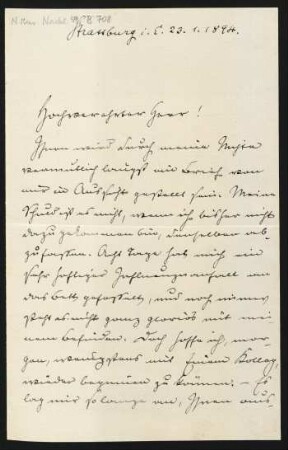 Strassburg i. E. 23. 1. 1894.
Hochverehrter Herr!
Ihnen wird durch meine Nichte
vermutlich längst ein Brief von
mir in Aussicht gestellt sein. Meine
Schuld ist es nicht, wenn ich bisher nicht
dazu gekommen bin, denselben ab-
zufassen. Acht Tage hat mich ein
sehr heftiger Influenzaanfall an
das Bett gefesselt, und noch immer
steht es nicht ganz glorios mit mei-
nem Befinden. Doch hoffe ich, mor-
gen, wenigstens mit einem Kolleg,
wieder beginnen zu können. – Es
lag mir so lange an, Ihnen aus-